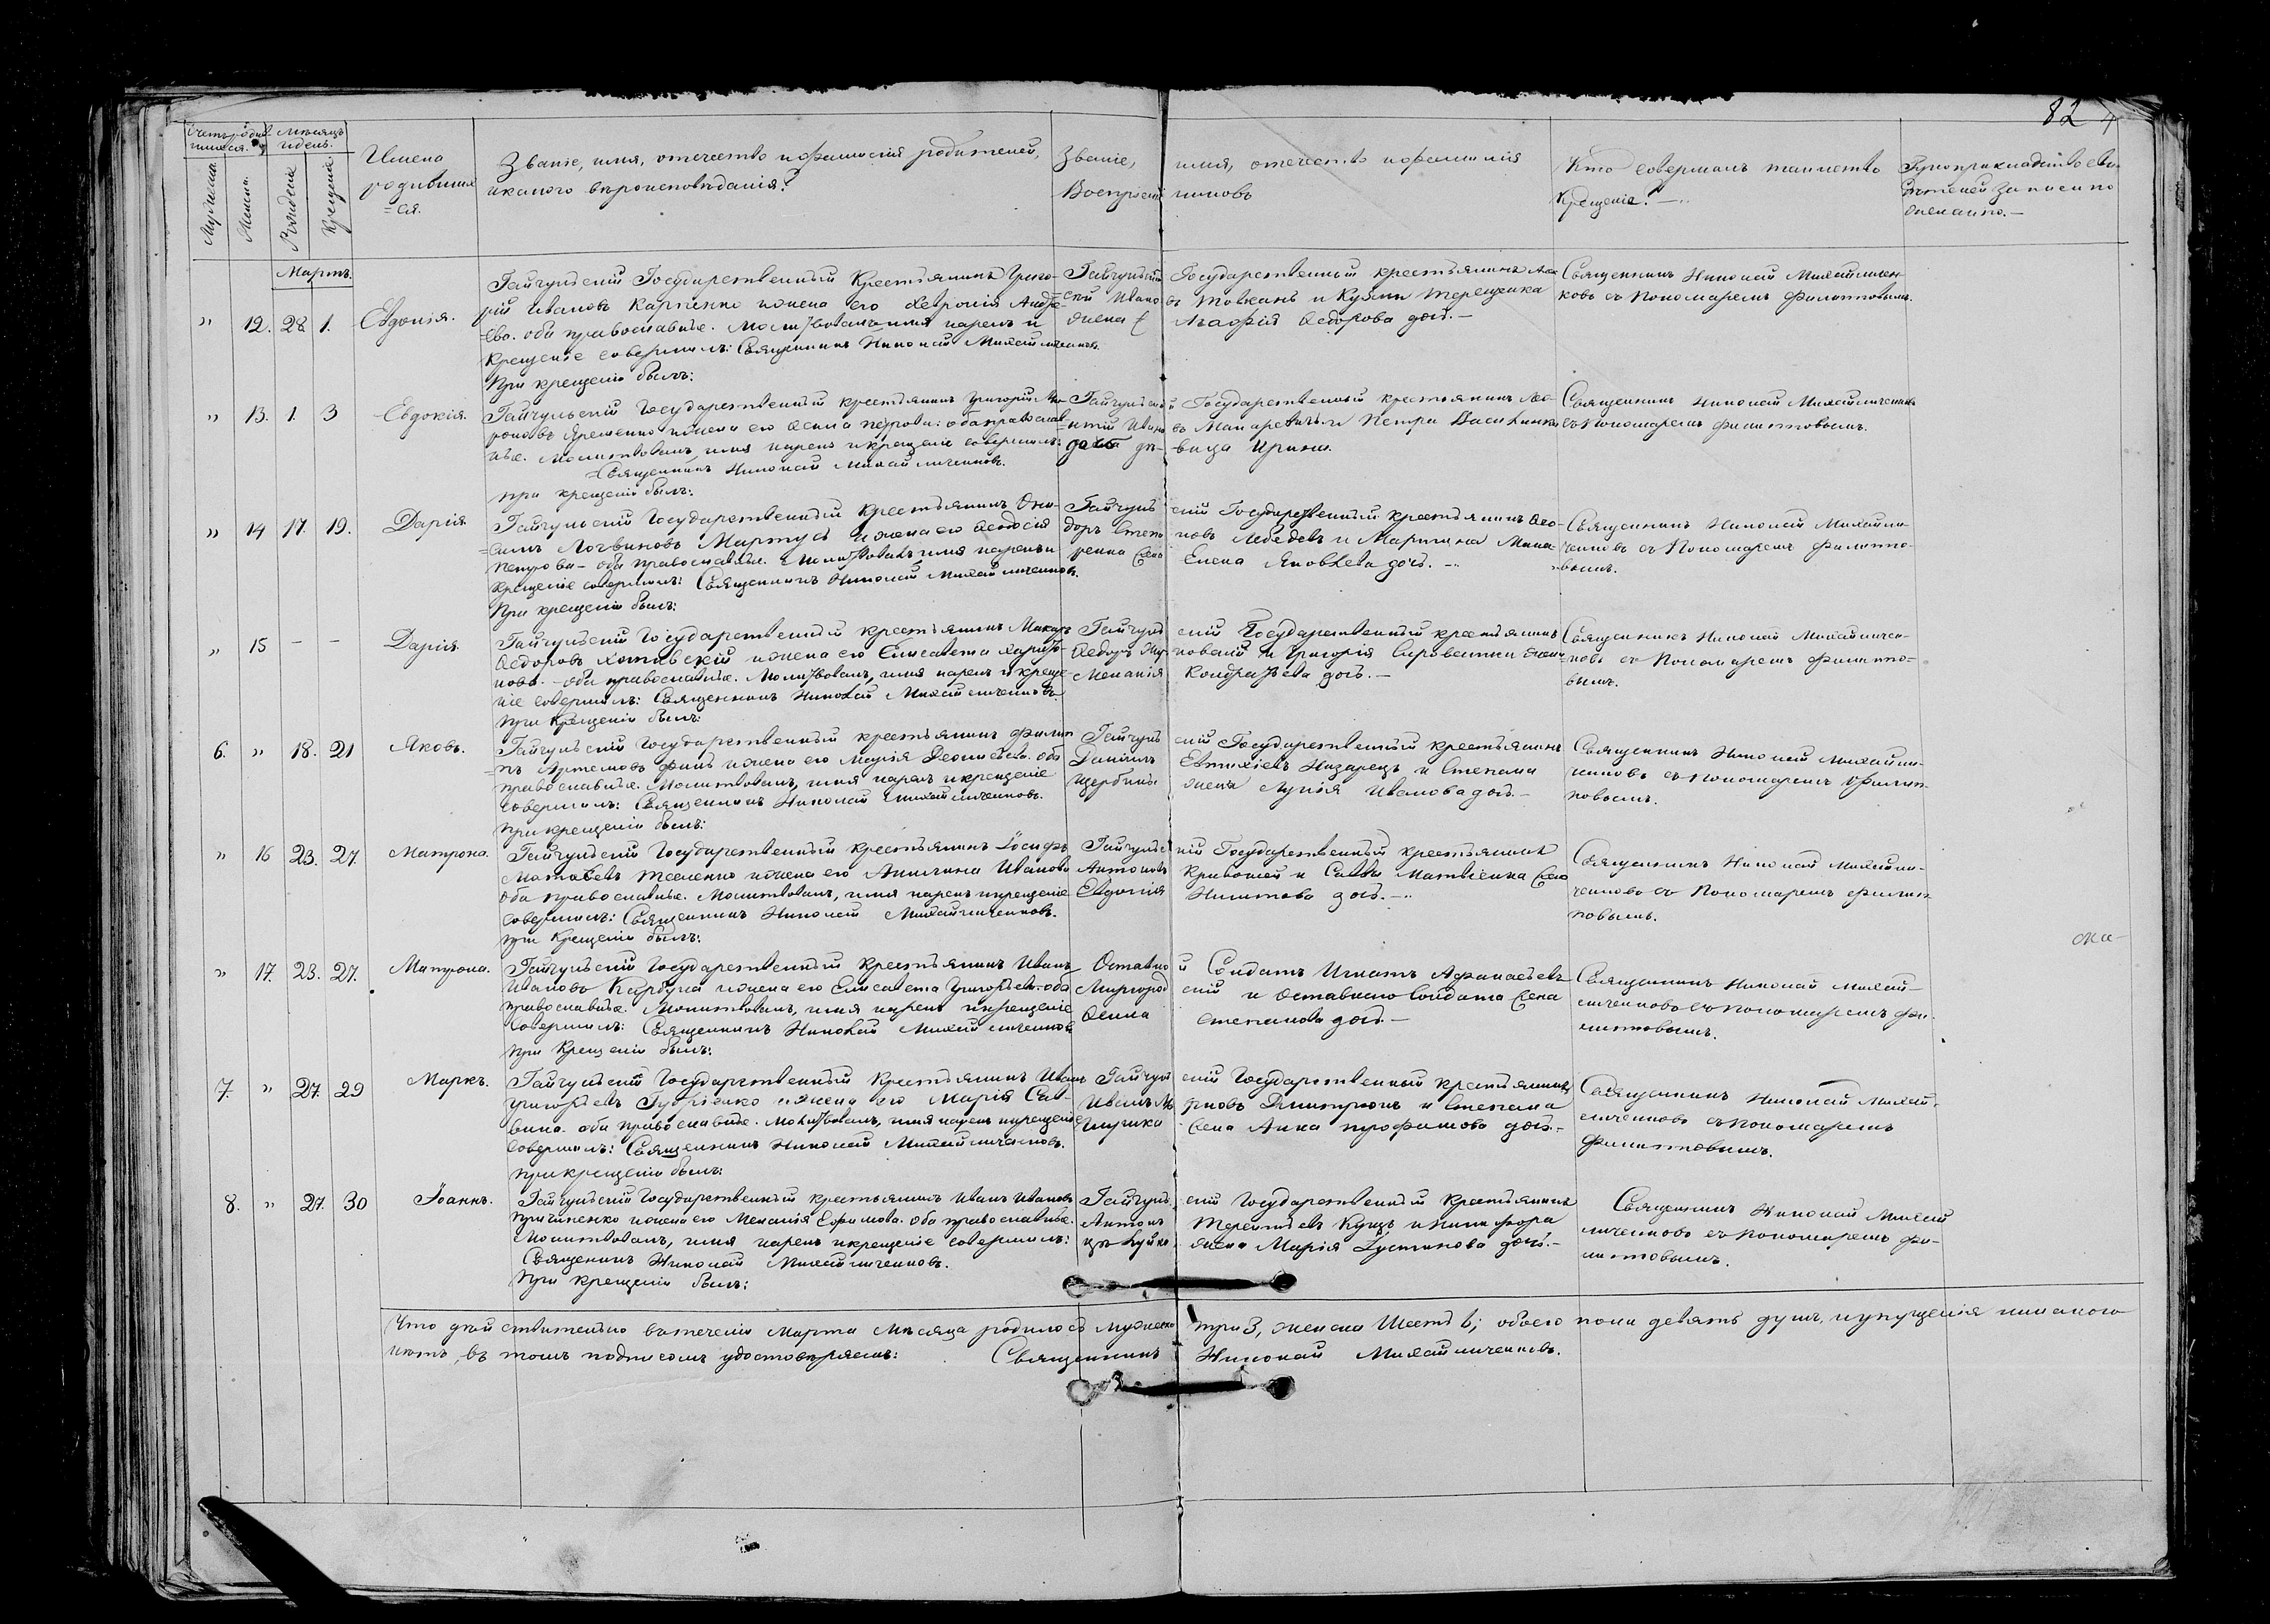 82
Счетъ родив-
шихся.
Мѣсяцъ
и день.
Мужеска.
Женска.
Рожденія
Крещенія
Имена
родивших
=ся.
Званіе, имя, отчество и фамилія родителей,
и какого вѣроисповѣданія.
Званіе, имя, отчество и фамилія
Воспріемниковъ
Кто совершалъ таинство
Крещенія.
Рукоприкладство сви-
дѣтелей записи по
желанію.
Мартъ.
" 12. 28. 1. Евдокія.
Гайчульскій Государственный Крестьянинъ Григо-
рій Ивановъ Карпенко и жена его Андре-
=ева. оба православные. Молитвовалъ, имя нарекъ и
Крещеніе совершилъ: Священникъ Николай Михайличенковъ.
При крещеніи былъ:
Государственный крестьянинъ
и Кузьмы Терещенка
жена Агафія Ѳедорова доч.
Священникъ Николай Михайличен-
ковъ съ Пономаремъ Филипповымъ.
" 13. 1. 3 Евдокія.
Гайчульскій Государственный крестьянинъ Григорій
Яременко и жена его Петрова: оба православ
ные. Молитвовалъ, имя нарекъ и крещеніе совершилъ:
Священникъ Николай Михайличенковъ.
при крещеніи былъ:
Гайчульскій Государственный крестьянинъ
Макаревичъ и Петра Василенка
дочь дѣ-
вица Ирина.
Священникъ Николай Михайличенковъ
съ Пономаремъ Филипповымъ.
" 14 17. 19. Дарія.
Гайчульскій Государственный крестьянинъ Они-
=симъ Логвиновъ и жена его Ѳеодосія
Петрова - оба православные. Молитвовалъ, имя нарекъ и
крещеніе совершилъ: Священникъ Николай Михайличенковъ.
При крещеніи былъ:
Гайчульскій Государственный крестьянинъ Ѳео-
доръ Лебедевъ и Мартина
Елена Яковлева доч.
Священникъ Николай Михайли-
ченковъ съ Пономаремъ Филиппо-
вымъ.
" 15 - - Дарія.
Гайчульскій Государственный крестьянинъ Макаръ
Ѳедоровъ и жена его Елисавета Харито-
нова. - оба православные. Молитвовалъ, имя нарекъ и креще-
ніе совершилъ: Священникъ Николай Михайличенковъ
При крещеніи былъ:
Гайчульскій Государственный крестьянинъ
Ѳедоръ и Григорія Сировашки жена
Меланія Кондратьева доч.
Священникъ Николай Михайличен-
ковъ съ Пономаремъ Филиппо-
вымъ.
6. " 18. 21 Яковъ.
Гайчульскій Государственный крестьянинъ Филип
=пъ Артемовъ и жена его Марія Леонтьева. оба
православные. Молитвовалъ, имя нарекъ и крещеніе
совершилъ: Священникъ Николай Михайличенковъ.
При крещеніи былъ:
Гайчульскій Государственный крестьянинъ
Даніилъ Евтихіевъ Назарецъ и Степана
Щербины жена Лукія Иванова доч.
Священникъ Николай Михайли-
ченковъ съ пономаремъ Филип-
повымъ.
" 16 23. 27. Матрона.
Гайчульскій Государственный крестьянинъ Іосифъ
Матвѣевъ и жена его Акилина Иванова
оба православные. Молитвовалъ, имя нарекъ и крещеніе
совершилъ: Священникъ Николай Михайличенковъ.
при Крещеніи былъ:
Гайчульскій Государственный крестьянинъ
Антоновъ Кривошей и Саввы Матвіенка жена
Евдокія Никитова доч.
Священникъ Николай Михайли-
ченковъ съ Пономаремъ Филип-
повымъ.
" 17. 23. 27. Матрона.
Гайчульскій Государственный крестьянинъ Иванъ
Ивановъ и жена его Елисавета Григорьева. оба
православные. Молитвовалъ, имя нарекъ и крещеніе
совершилъ: Священникъ Николай Михайличенковъ
при Крещеніи былъ:
Отставной Солдатъ Игнатъ Афанасьевъ
Миргородскій и отставнаго Солдата жена
Степанова доч.
Священникъ Николай Михай-
личенковъ съ пономаремъ Фи-
липповымъ.
7. " 27. 29 Маркъ.
Гайчульскій Государственный Крестьянинъ Иванъ
Григорьевъ и жена его Марія Сав-
вина. оба православные. Молитвовалъ, имя нарекъ и крещеніе
совершилъ: Священникъ Николай Михайличенковъ.
При крещеніи былъ:
Гайчульскій Государственный крестьянинъ
Иванъ Дмитрюкъ и Степана
жена Анна Трофимова доч.
Священникъ Николай Михай-
личенковъ съ пономаремъ
Филипповымъ.
8. " 27. 30 Іоаннъ.
Гайчульскій Государственный крестьянинъ Иванъ Ивановъ
и жена его Меланія Ефимова. оба православные.
Молитвовалъ, имя нарекъ и крещеніе совершилъ:
Священникъ Николай Михайличенковъ.
При крещеніи былъ:
Гайчульскій Государственный Крестьянинъ
Антонъ Терентьевъ Куцъ и Никифора
жена Марія Іустинова доч.
Священникъ Николай Михай
личенковъ съ пономаремъ Фи-
липповымъ.
Что дѣйствительно въ теченіи Марта Мѣсяца родилось мужеска три 3, женска Шесть 6; обоего пола девять душъ, и упущенія никакого
нѣтъ, въ томъ подписомъ удостовѣряемъ: Священникъ Николай Михайличенковъ.